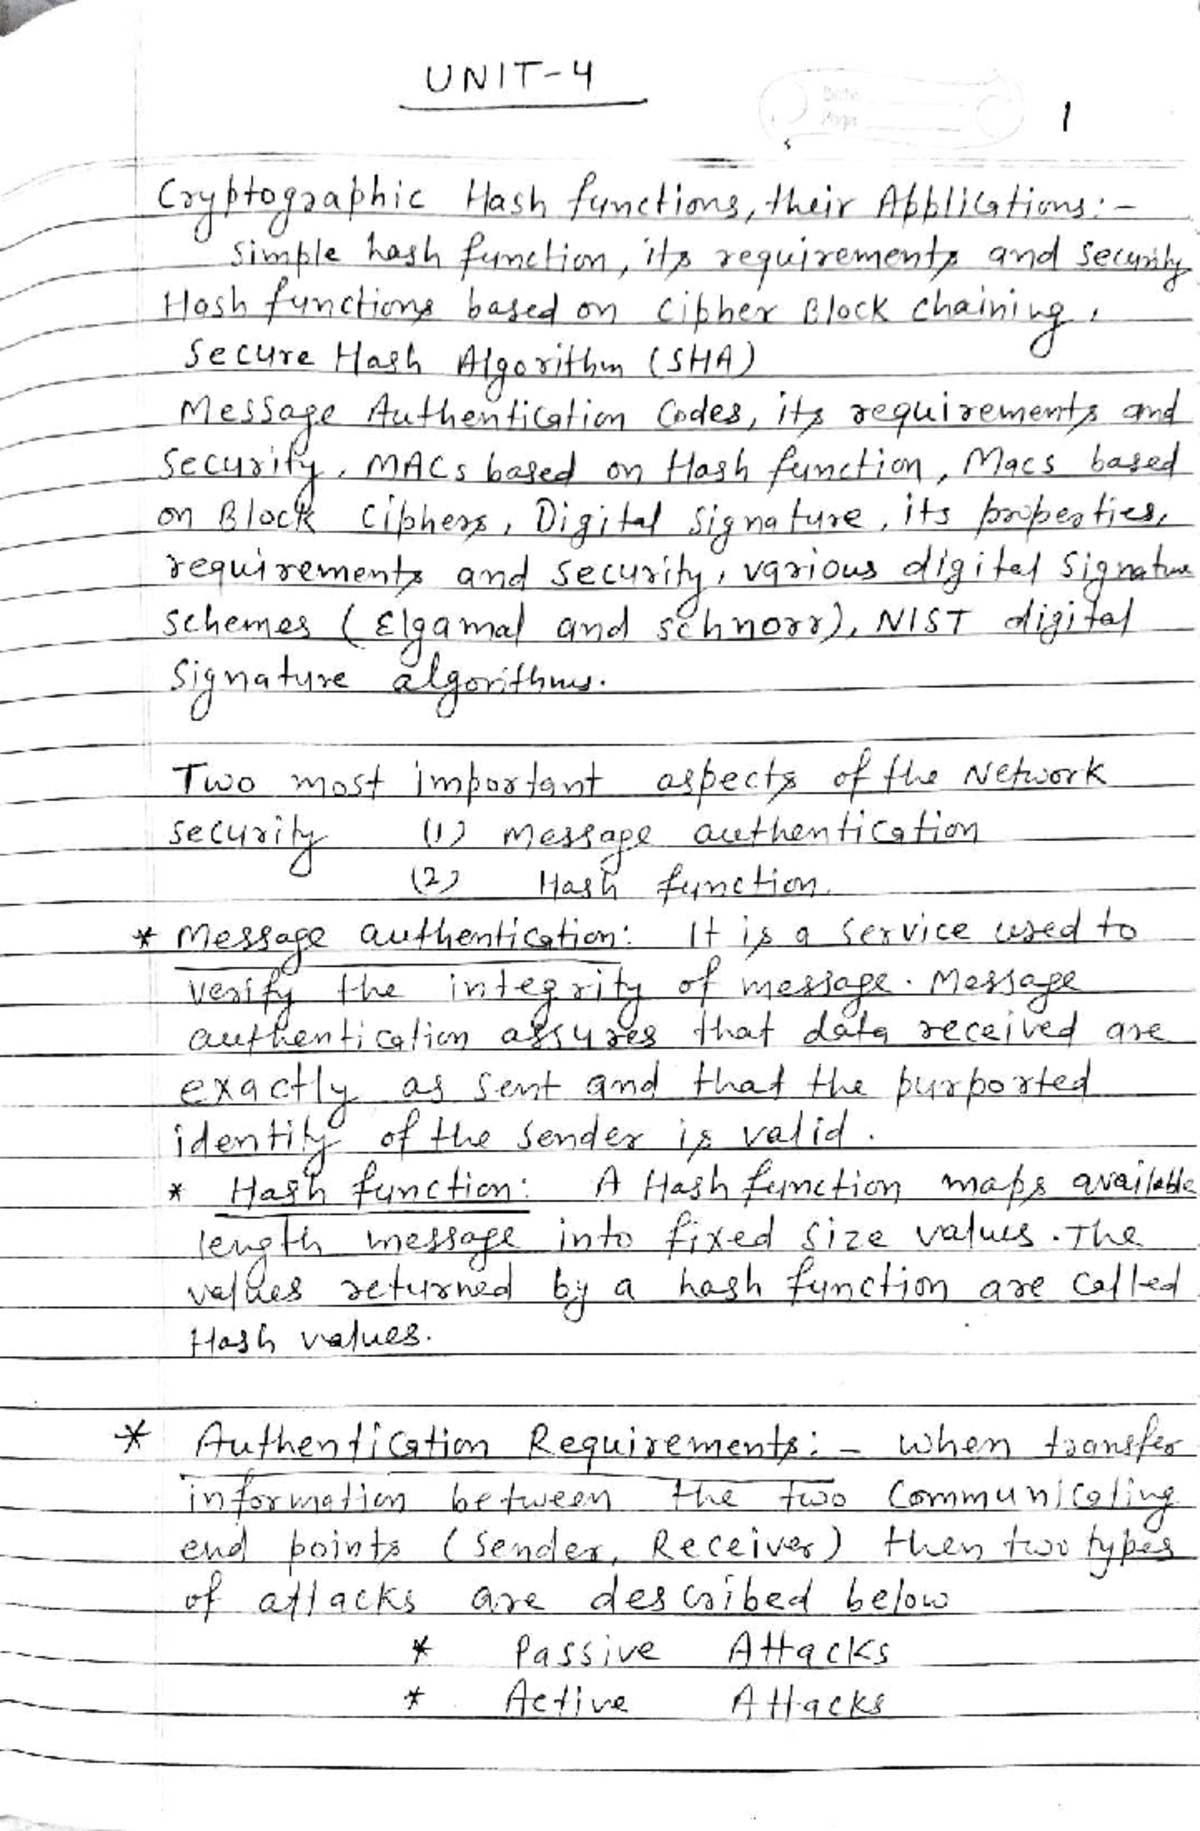 UNIT-4
Date
Page
1
Cryptographic Hash functions, their Applications:-
Simple hash function, its requirements and security
Hash functions based on Cipher Block Chaining,
Secure Hash Algorithm (SHA)
Message Authentication Codes, its requirements and
Security, MACs based on Hash function, Macs based
on Block Ciphers, Digital Signature, its properties,
requirements and security, various digital Signature
Schemes (Elgamal and schnorr), NIST digital
Signature algorithms.
Two most important aspects of the Network
security (1) Message authentication
(2) Hash function.
* Message authentication: It is a service used to
verify the integrity of message. Message
authentication assures that data received are
exactly as sent and that the purported
identity of the sender is valid.
* Hash function: A Hash function maps available
length message into fixed size values. The
values returned by a hash function are called
Hash values.
* Authentication Requirements:- When transfer
information between the two Communicating
end points (Sender, Receiver) then two types
of attacks are described below
* Passive Attacks
* Active Attacks